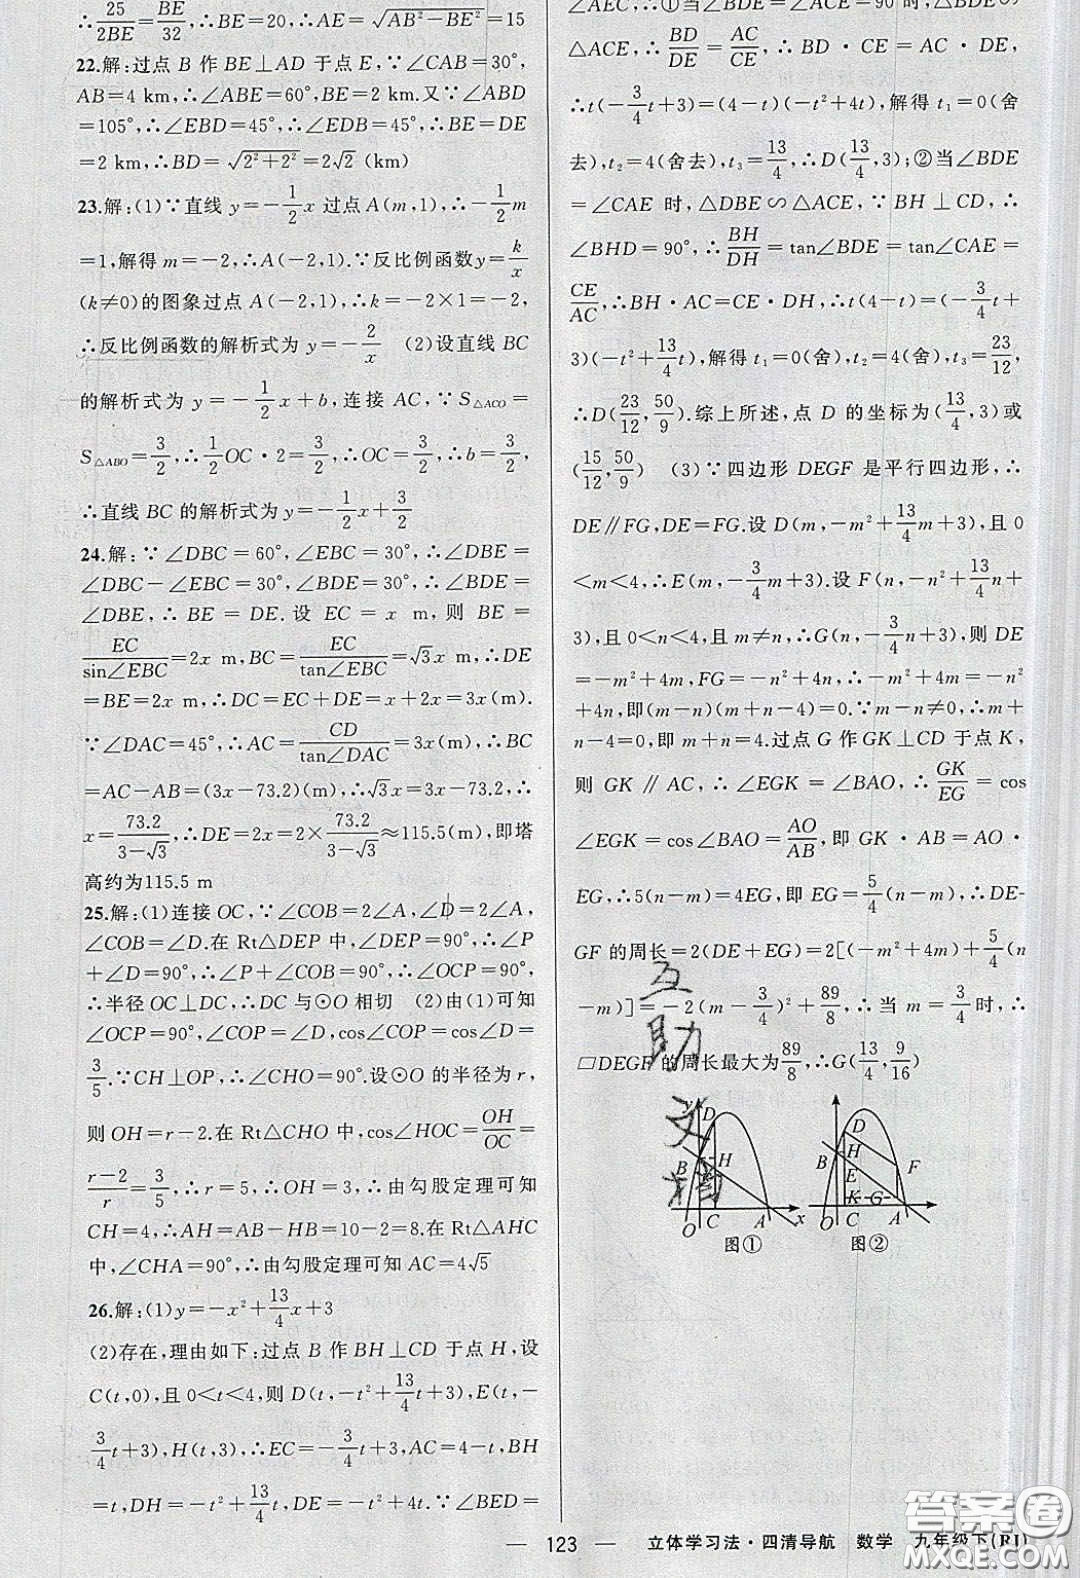 ∴25/2BE=BE/32,∴BE=20,∴AE=√(AB²-BE²)=15
22.解:过点 B 作 BE⊥AD 于点 E,∵∠CAB=30°,
AB=4 km,∴∠ABE=60°,BE=2 km.又∵∠ABD
=105°,∴∠EBD=45°,∴∠EDB=45°,∴BE=DE
=2 km,∴BD=√(2²+2²)=2√2 (km)
23.解:(1)∵直线 y=-1/2x 过点 A(m,1),∴-1/2m
=1,解得 m=-2,∴A(-2,1).∵反比例函数y=k/x
(k≠0)的图象过点 A(-2,1),∴k=-2×1=-2,
∴反比例函数的解析式为 y=-2/x (2)设直线 BC
的解析式为 y=-1/2x+b,连接 AC,∵S△ACO=
S△ABO=3/2,∴1/2OC·2=3/2,∴OC=3/2,∴b=3/2,
∴直线 BC 的解析式为 y=-1/2x+3/2
24.解:∵∠DBC=60°,∠EBC=30°,∴∠DBE=
∠DBC-∠EBC=30°,∠BDE=30°,∴∠BDE=
∠DBE,∴BE=DE.设 EC=x m,则 BE=
EC/sin∠EBC=2x m,BC=EC/tan∠EBC=√3x m,∴DE
=BE=2x m,∴DC=EC+DE=x+2x=3x(m).
∵∠DAC=45°,∴AC=CD/tan∠DAC=3x(m),∴BC
=AC-AB=(3x-73.2)(m),∴√3x=3x-73.2,∴
x=73.2/(3-√3),∴DE=2x=2×73.2/(3-√3)≈115.5(m),即塔
高约为115.5 m
25.解:(1)连接 OC,∵∠COB=2∠A,∠D=2∠A,
∠COB=∠D.在 Rt△DEP 中,∠DEP=90°,∴∠P
+∠D=90°,∴∠P+∠COB=90°,∴∠OCP=90°,
∴半径 OC⊥DC,∴DC 与⊙O 相切 (2)由(1)可知
∠OCP=90°,∠COP=∠D,cos∠COP=cos∠D=
3/5.∵CH⊥OP,∴∠CHO=90°.设⊙O 的半径为 r,
则 OH=r-2.在 Rt△CHO 中,cos∠HOC=OH/OC=
(r-2)/r=3/5,∴r=5,∴OH=3,∴由勾股定理可知
CH=4,∴AH=AB-HB=10-2=8.在 Rt△AHC
中,∠CHA=90°,∴由勾股定理可知 AC=4√5
26.解:(1)y=-x²+13/4x+3
(2)存在,理由如下:过点 B 作 BH⊥CD 于点 H,设
C(t,0),且 0<t<4,则 D(t,-t²+13/4t+3),E(t,-
3/4t+3),H(t,3),∴EC=-3/4t+3,AC=4-t,BH
=t,DH=-t²+13/4t,DE=-t²+4t.∵∠BED=
∠AEC,∴①当∠BDE=∠ACE=90°时,△BDE∽
△ACE,∴BD/DE=AC/CE,∴BD·CE=AC·DE,
∴t(-3/4t+3)=(4-t)(-t²+4t),解得 t₁=0(舍
去),t₂=4(舍去),t₃=13/4,∴D(13/4,3);②当∠BDE
=∠CAE 时,△DBE∽△ACE,∵BH⊥CD,∴
∠BHD=90°,∴BH/DH=tan∠BDE=tan∠CAE=
CE/AC,∴BH·AC=CE·DH,∴t(4-t)=(-3/4t+
3)(-t²+13/4t),解得 t₁=0(舍),t₂=4(舍),t₃=23/12,
∴D(23/12,50/9).综上所述,点 D 的坐标为(13/4,3)或
(15/12,50/9) (3)∵四边形 DEGF 是平行四边形,∴
DE∥FG,DE=FG.设 D(m,-m²+13/4m+3),且 0
<m<4,∴E(m,-3/4m+3).设 F(n,-n²+13/4n+
3),且 0<n<4,且 m≠n,∴G(n,-3/4n+3),则 DE
=-m²+4m,FG=-n²+4n,∴-m²+4m=-n²
+4n,即(m-n)(m+n-4)=0.∵m-n≠0,∴m+
n-4=0,即 m+n=4.过点 G 作 GK⊥CD 于点 K,
则 GK∥AC,∴∠EGK=∠BAO,∴GK/EG=cos
∠EGK=cos∠BAO=AO/AB,即 GK·AB=AO·
EG,∴5(n-m)=4EG,即 EG=5/4(n-m),∴▱DE-
GF 的周长=2(DE+EG)=2[(-m²+4m)+5/4(n
-m)]=-2(m-3/4)²+89/8,∴当 m=3/4时,∴
▱DEGF 的周长最大为89/8,∴G(13/4,9/16)
y D B H E O C A x
图①
D B H F E K G O C A
图②
互助文档
123
立体学习法·四清导航 数学 九年级下(RJ)
答案圈
MXQE.COM